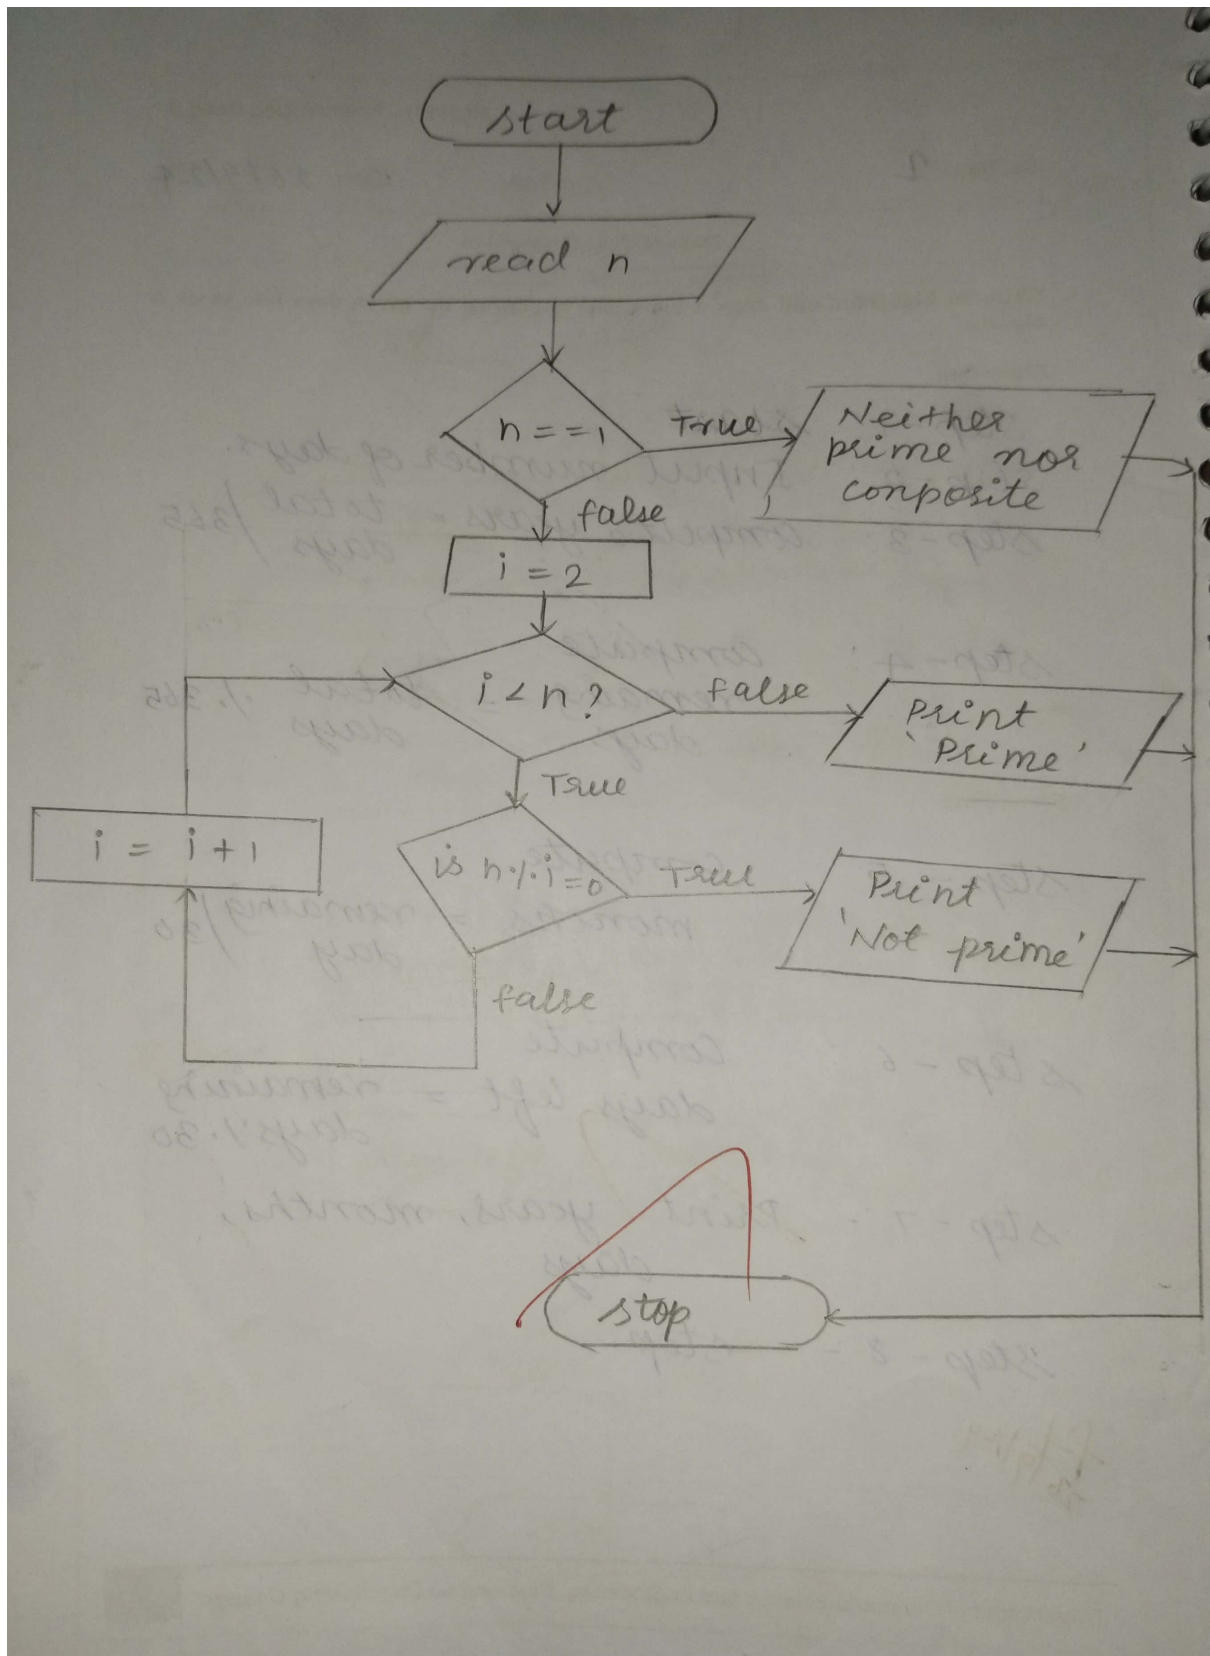 start
read n
n = = 1
True
Neither
prime nor
conposite
false
i = 2
i < n ?
false
Print
'Prime'
True
i = i + 1
is n % i = 0
True
Print
'Not prime'
false
stop